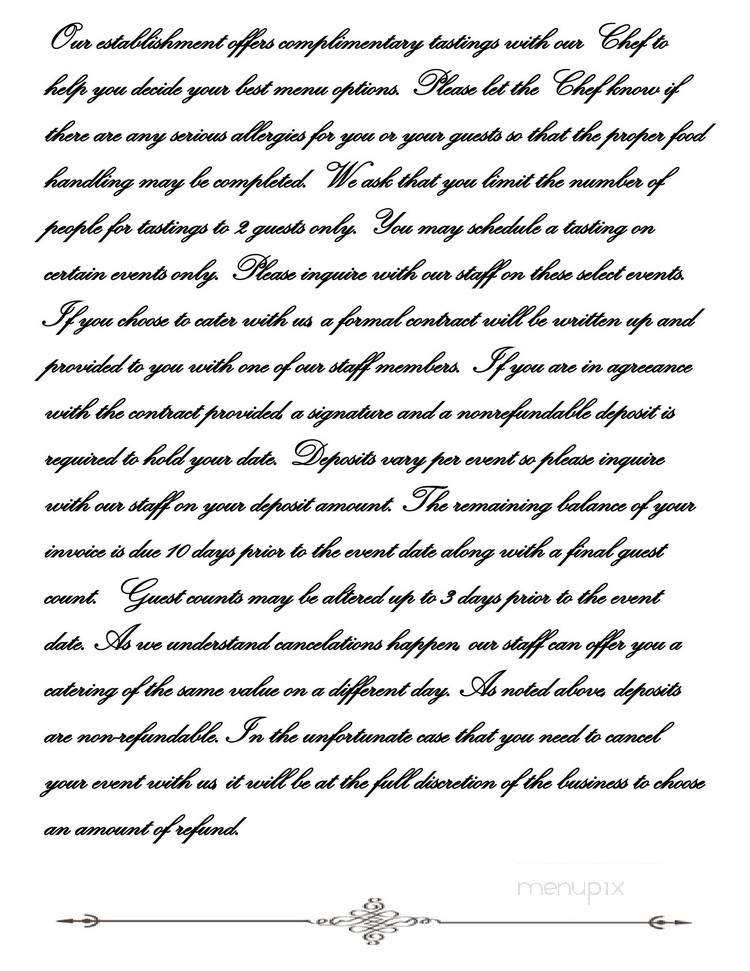 Our establishment offers complimentary tastings with our Chef to
help you decide your best menu options. Please let the Chef know if
there are any serious allergies for you or your guests so that the proper food
handling may be completed. We ask that you limit the number of
people for tastings to 2 guests only. You may schedule a tasting on
certain events only. Please inquire with our staff on these select events.
If you choose to cater with us, a formal contract will be written up and
provided to you with one of our staff members. If you are in agreeance
with the contract provided, a signature and a nonrefundable deposit is
required to hold your date. Deposits vary per event so please inquire
with our staff on your deposit amount. The remaining balance of your
invoice is due 10 days prior to the event date along with a final guest
count. Guest counts may be altered up to 3 days prior to the event
date. As we understand cancelations happen, our staff can offer you a
catering of the same value on a different day. As noted above, deposits
are non-refundable. In the unfortunate case that you need to cancel
your event with us, it will be at the full discretion of the business to choose
an amount of refund.
menupix